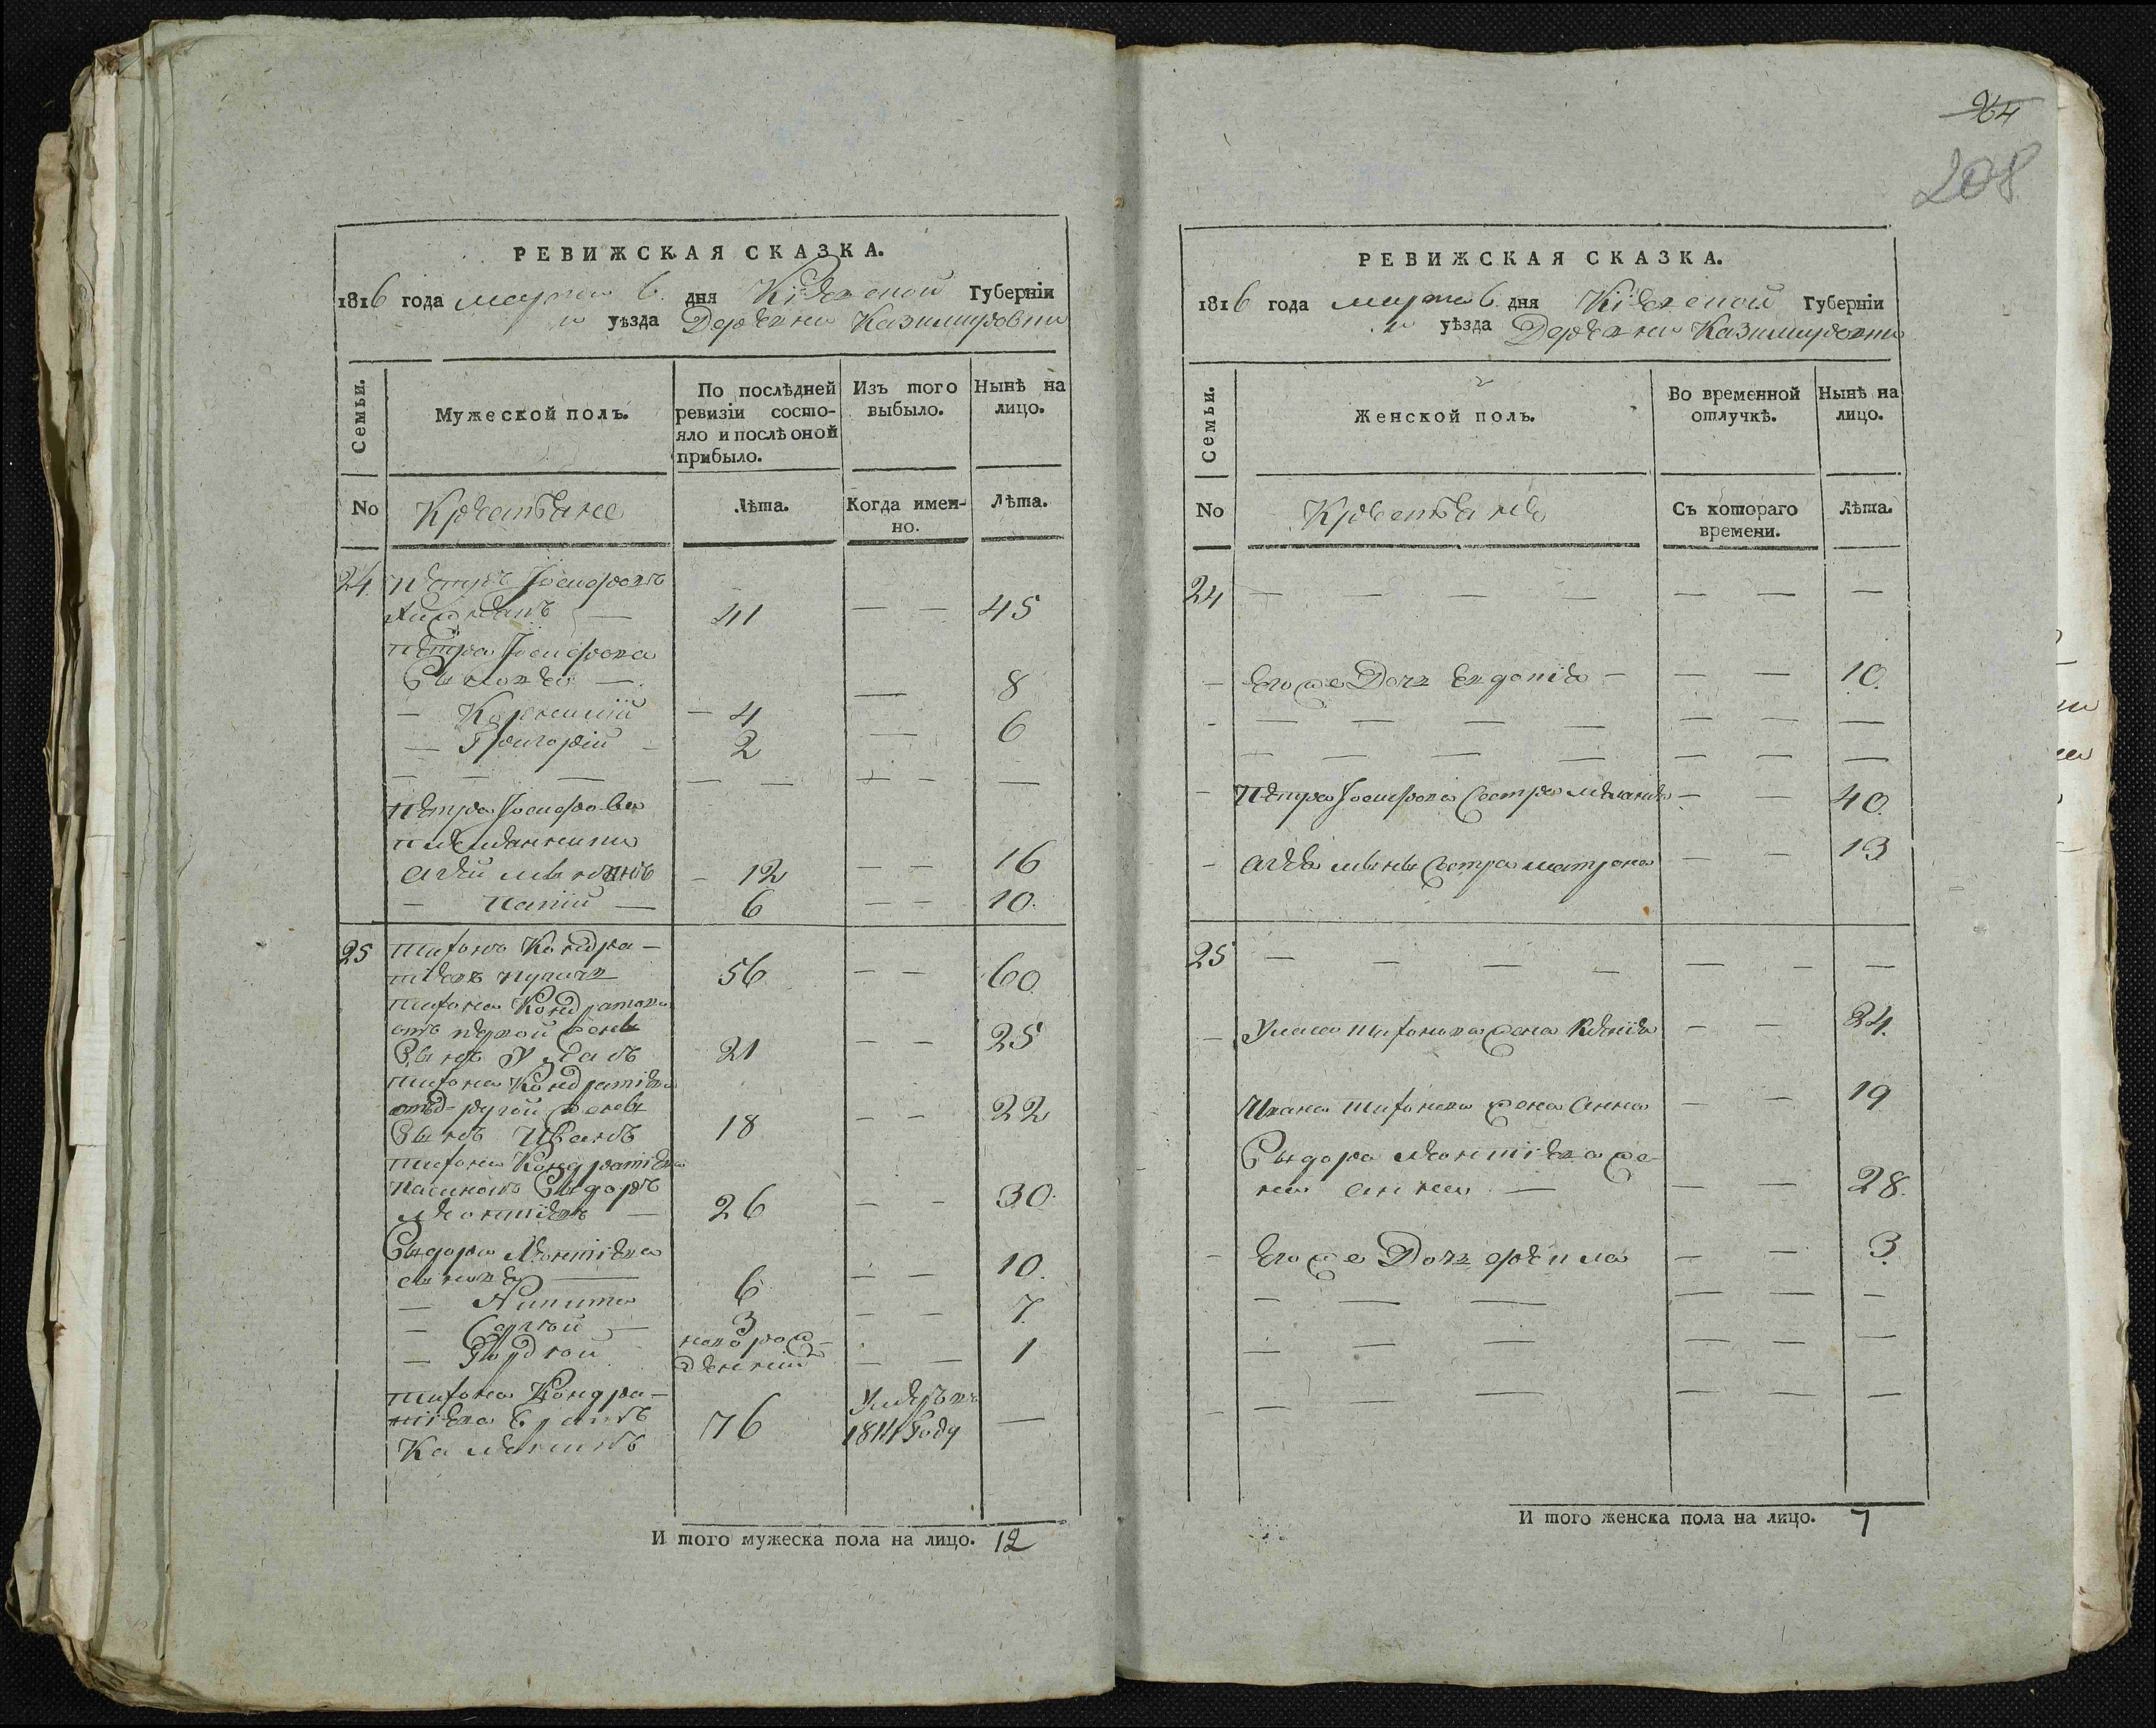 РЕВИЖСКАЯ СКАЗКА.
1816 года марта 6 дня Кіевской Губерніи
уѣзда Деревни Казимировки
Семьи.
Мужеской полъ.
По послѣдней ревизіи состо-
яло и послѣ оной
прибыло.
Изъ того
выбыло.
Нынѣ на
лицо.
No
Крестьяне
Лѣта.
Когда имен-
но.
Лѣта.
24 Петръ Іосифовъ
41 — — 45
Петра Іосифова
Сыновья — — 8
— — 4 — 6
— Григорій — 2
— — — — — — — —
Петра Іосифова
племянники
12 — — 16
— — 6 — — 10.
25 Тифонъ Кондра-
тіевъ 56 — — 60.
Тифона Кондратова
отъ первой жены
Сынъ Уласъ 21 — — 25
Тифона Кондратіева
отъ другой жены
Сынъ Иванъ 18 — — 22
Тифона Кондратіева
пасинокъ Сыдоръ
Леонтіевъ — 26 — — 30.
Сыдора Леонтіева
сыновья — 6 — — 10.
— Никита 3 — — 7.
— Сергѣй — новорож-
— Гордѣй денній — — 1
Тифона Кондра-
тіева братъ 76 Умеръ въ
1814 Году —
И того мужеска пола на лицо. 12
264
208
РЕВИЖСКАЯ СКАЗКА.
1816 года марта 6 дня Кіевской Губерніи
уѣзда Деревни Казимировки
Семьи.
Женской полъ.
Во временной
отлучкѣ.
Нынѣ на
лицо.
No
Крестьяне
Съ котораго
времени.
Лѣта.
24 — — — — — — —
— Его же Дочь Евдокія — — — 10.
- — — — — — — —
— — — — — — —
- Петра Іосифова Сестра Меланія — — — 40.
- Сестра Матрона — — 13
25 — — — — — — —
— Уласа Тифонова жена Ксенія — — 24.
Ивана Тифонова жена Анна — — 19
Сыдора Леонтіева же-
на Анна — — — 28.
- Его же Дочь — — 3.
— — — — — —
— — — — —
— — — — — —
И того женска пола на лицо. 7